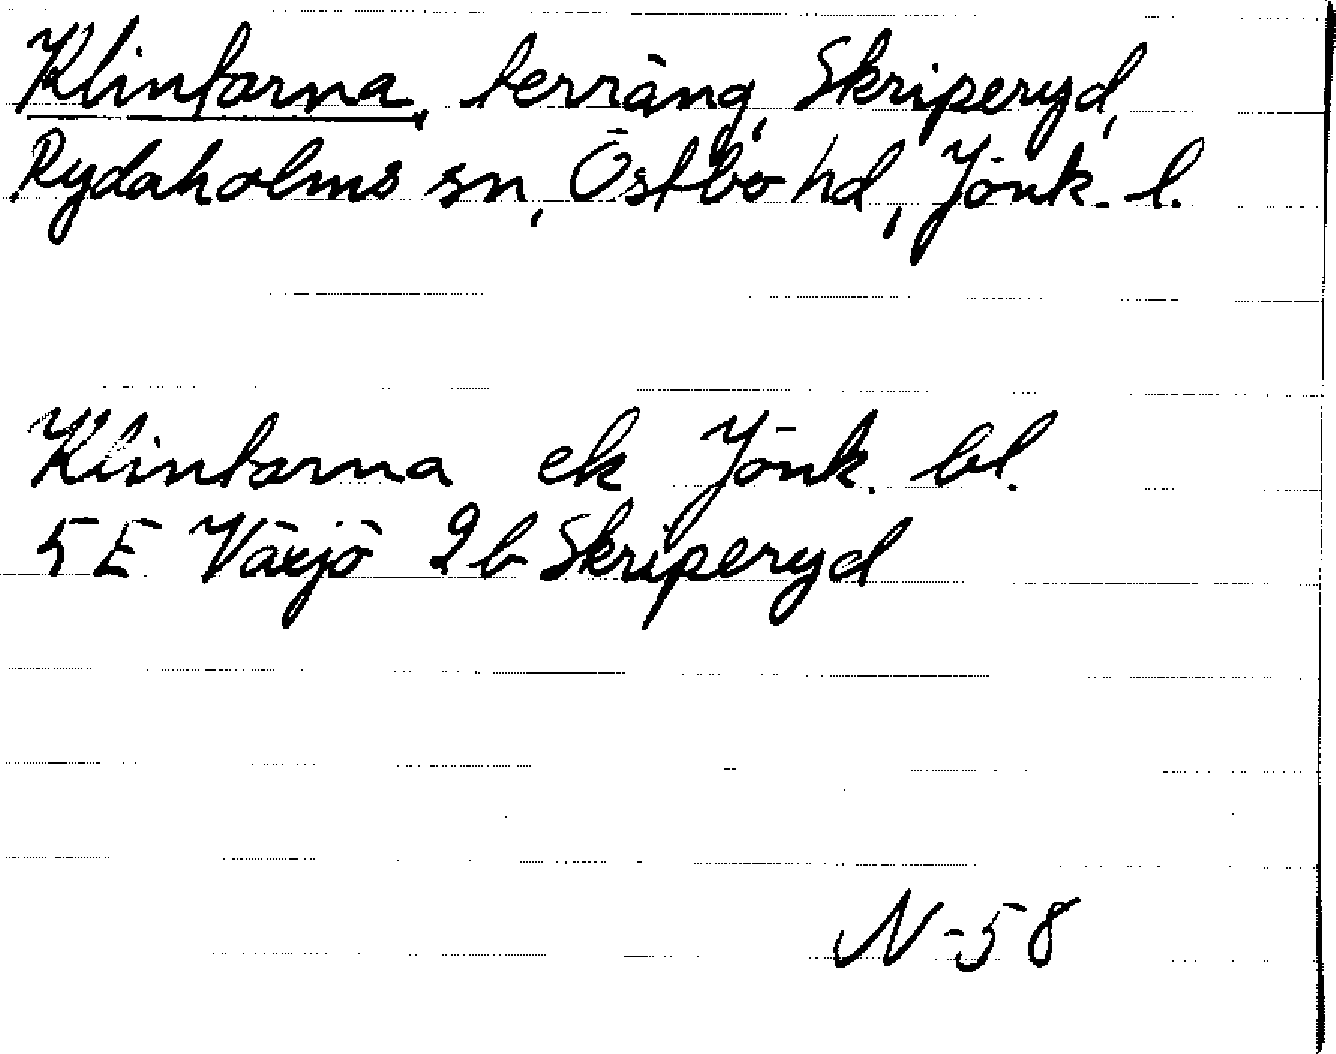 Klintarna, terräng, Skriperyd,
Rydaholms sn, Östbo hd, Jönk. l.
Klintarna ek Jönk. bl.
5E Växjö 2b Skriperyd
N-58